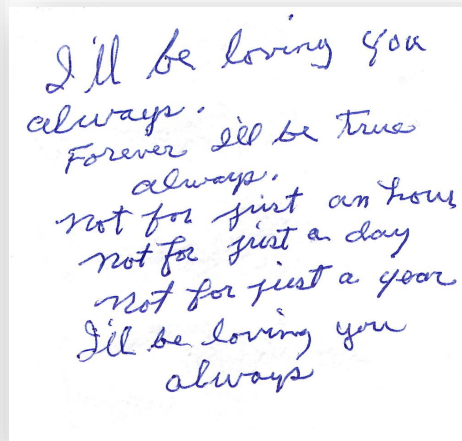 I'll be loving you
always.
Forever I'll be true
always.
Not for just an hour
Not for just a day
Not for just a year
I'll be loving you
always